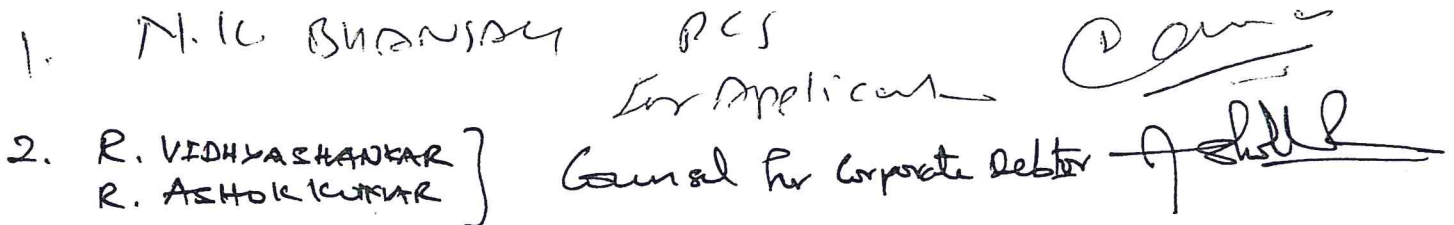 1. N.K. BHANSALI PCS
For Applicant
2. R. VIDHYASHANKAR
R. ASHOK KUMAR } Counsel for Corporate Debtor